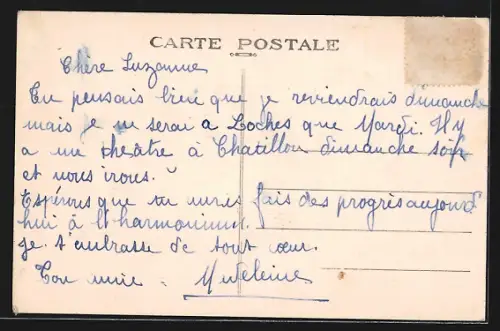 CARTE POSTALE
Chère Suzanne
Tu pensais bien que je reviendrais dimanche
mais je ne serai a Loches que Mardi. Il y
a un théâtre à Chatillon dimanche soir
et nous irons.
Espérons que tu auras fais des progrès aujourd'
hui à l'harmonium.
je t'embrasse de tout cœur.
Ton amie. Madeleine